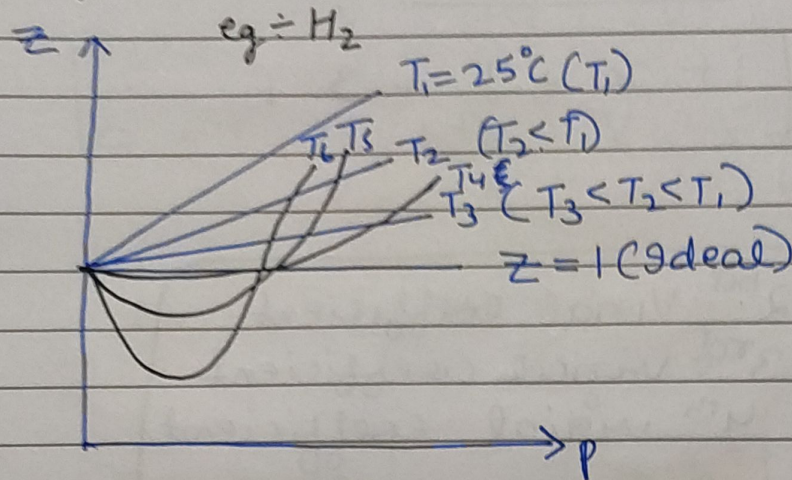 Z
eg ÷ H₂
T₁ = 25°C (T₁)
T₆ T₅ T₂ (T₂ < T₁)
T₄
T₃ (T₃ < T₂ < T₁)
Z = 1 (Ideal)
P